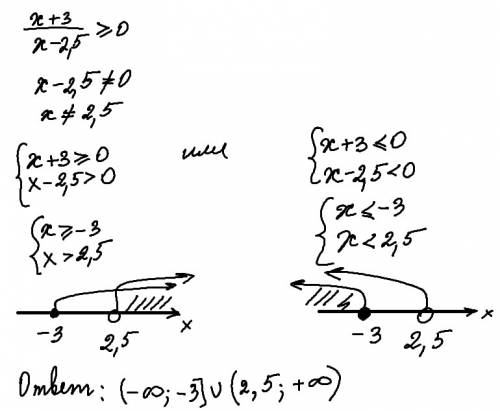 x+3
x-2,5 ≥0
x-2,5≠0
x≠2,5
{ x+3≥0
x-2,5>0
или
{ x+3≤0
x-2,5<0
{ x≥-3
x>2,5
{ x≤-3
x<2,5
-3 2,5 x
-3 2,5 x
Ответ: (-∞; -3]∪(2,5; +∞)